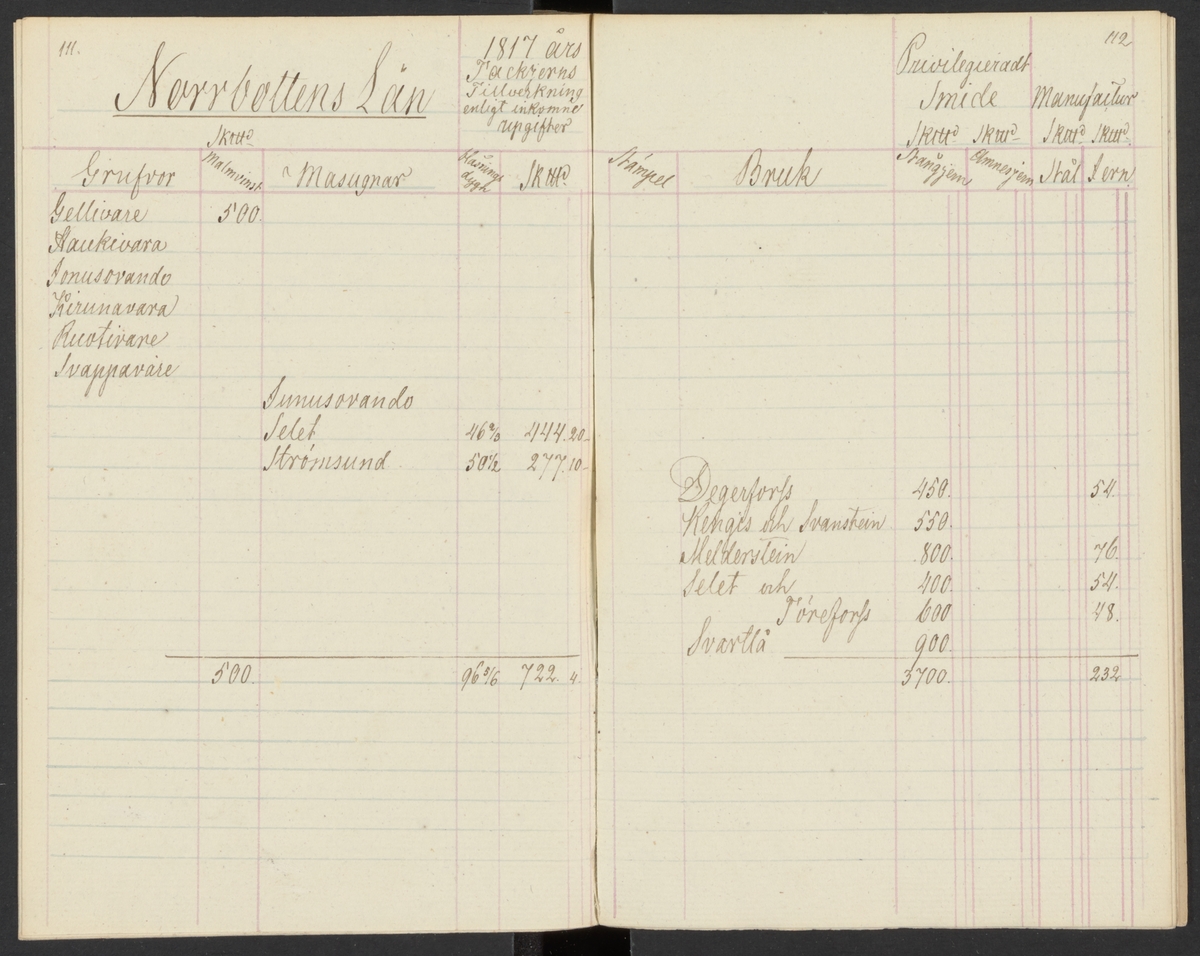 111.
Norrbottens Län
1817 års
Tackjerns
Tillverkning
enligt inkomne
upgifter
Sktt℔
Grufvor
Malmvinst
Masugnar
blåsnings
dygn
Sktt℔
Gellivare 500.
Haukivara
Jonusovando
Kirunavara
Ruotivare
Svappavare
Junusovando
Selet 46 2/6 444. 20
Strömsund 50 1/2 277. 10
500. 96 5/6 722. 4.
112
Privilegieradt
Smide Manufactur
Sktt℔ Sktt℔ Sktt℔ Sktt℔
Stämpel Bruk Stångjern Ämnesjern Stål Jern
Degerforss 450. 54.
Kengis och Svanstein 550.
Melderstein 800. 76.
Selet och 400. 54.
Töreforss 600 48.
Svartlå 900.
3700. 232